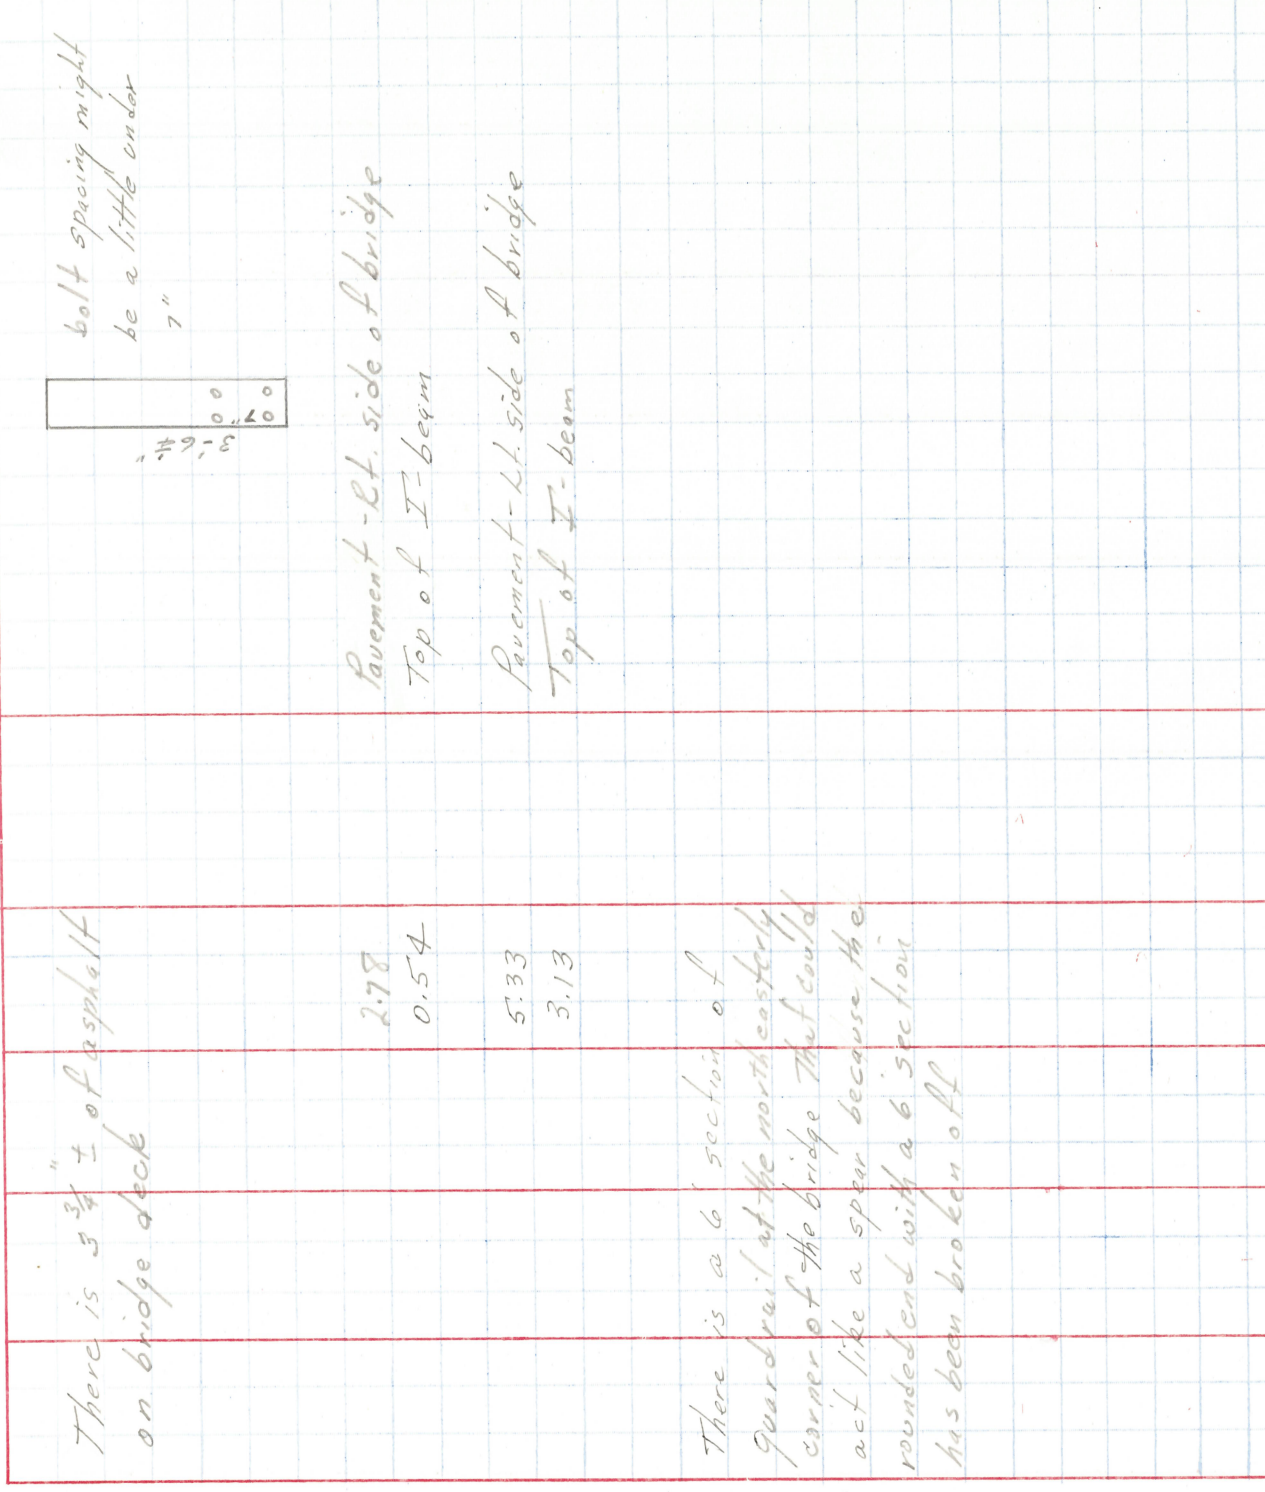 There is 3 3/4" ± of asphalt
on bridge deck
bolt spacing might
be a little under
7"
3'-6"±
7"
2.78 Pavement - Rt. side of bridge
0.54 Top of I-beam
5.33 Pavement - Lt. side of bridge
3.13 Top of I-beam
There is a 6' section of
guardrail at the northeasterly
corner of the bridge that could
act like a spear because the
rounded end with a 6' section
has been broken off